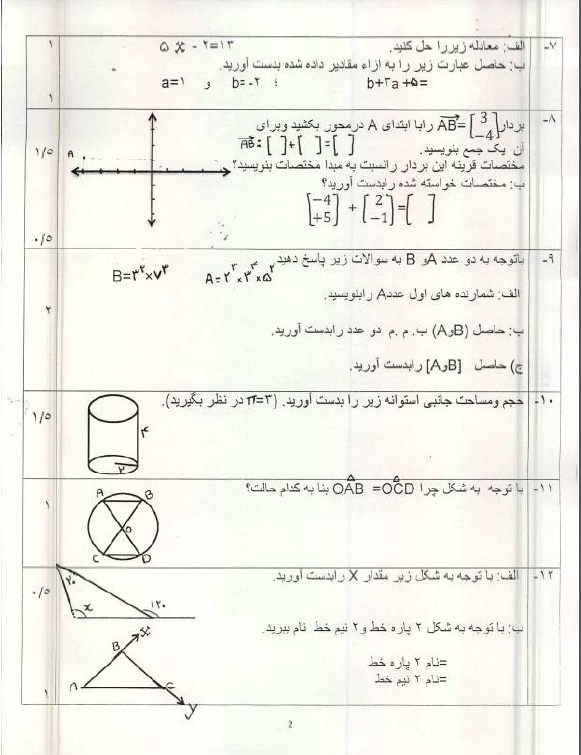 ۷- الف: معادله زیررا حل کنید. ۵x - ۲=۱۳ ۱
ب: حاصل عبارت زیر را به ازاء مقادیر داده شده بدست آورید. ۱
b+۳a +۵= ؛ b= -۲ و a=۱
۸- بردار AB=[3 -4] رابا ابتدای A درمحور بکشید وبرای
آن یک جمع بنویسید. AB: [ ]+[ ]=[ ]
A
۱/۵
مختصات قرینه این بردار رانسبت به مبدا مختصات بنویسید؟
ب: مختصات خواسته شده رابدست آورید؟
[-4 +5] + [2 -1]=[ ]
۰/۵
۹- باتوجه به دو عدد Aو B به سوالات زیر پاسخ دهید
A=۲^۳×۳^۴×۵^۲ B=۳^۲×۷^۳
الف: شمارنده های اول عددA رابنویسید.
۲
ب: حاصل (BوA) ب. م .م دو عدد رابدست آورید.
ج) حاصل [BوA] رابدست آورید.
۱۰- حجم ومساحت جانبی استوانه زیر را بدست آورید. (π=۳ در نظر بگیرید). ۱/۵
۴
۲
۱۱- با توجه به شکل چرا OAB =OCD بنا به کدام حالت؟ ۱
A B
O
C D
۱۲- الف: با توجه به شکل زیر مقدار X رابدست آورید. ۰/۵
۲۰
x ۱۲۰
ب: با توجه به شکل ۲ پاره خط و۲ نیم خط نام ببرید.
B x
نام ۲ پاره خط=
نام ۲ نیم خط=
A C
y
۱
2